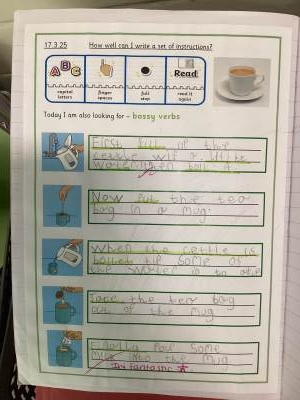 17.3.25 How well can I write a set of instructions?
ABC
Read
capital letters
finger spaces
full stop
read it again
Today I am also looking for - bossy verbs
First fill up the
cettle wif a little
water then boil it.
Now Put the tea
bag in a mug.
When the cettle is
boiled tip some of
the water in to the
Take the tea bag
out of the mug
Finally Pour some
Milk into the mug
fantastic